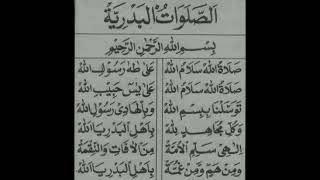 اَلصَّلَوَاتُ الْبَدْرِيَّةُ
بِسْمِ اللهِ الرَّحْمٰنِ الرَّحِيْمِ
صَلَاةُ اللهْ سَلَامُ اللهْ عَلَى طٰهَ رَسُوْلِ اللهْ
صَلَاةُ اللهْ سَلَامُ اللهْ عَلَى يٰسٓ حَبِيْبِ اللهْ
تَوَسَّلْنَا بِبِسْمِ اللهْ وَبِالْهَادِى رَسُوْلِ اللهْ
وَكُلِّ مُجَاهِدٍ لِلّٰهْ بِاَهْلِ الْبَدْرِ يَا اَللهْ
اِلٰهِى سَلِّمِ الْاُمَّةْ مِنَ الْاٰفَاتِ وَالنِّقْمَةْ
وَمِنْ هَمٍّ وَمِنْ غُمَّةْ بِاَهْلِ الْبَدْرِ يَا اَللهْ